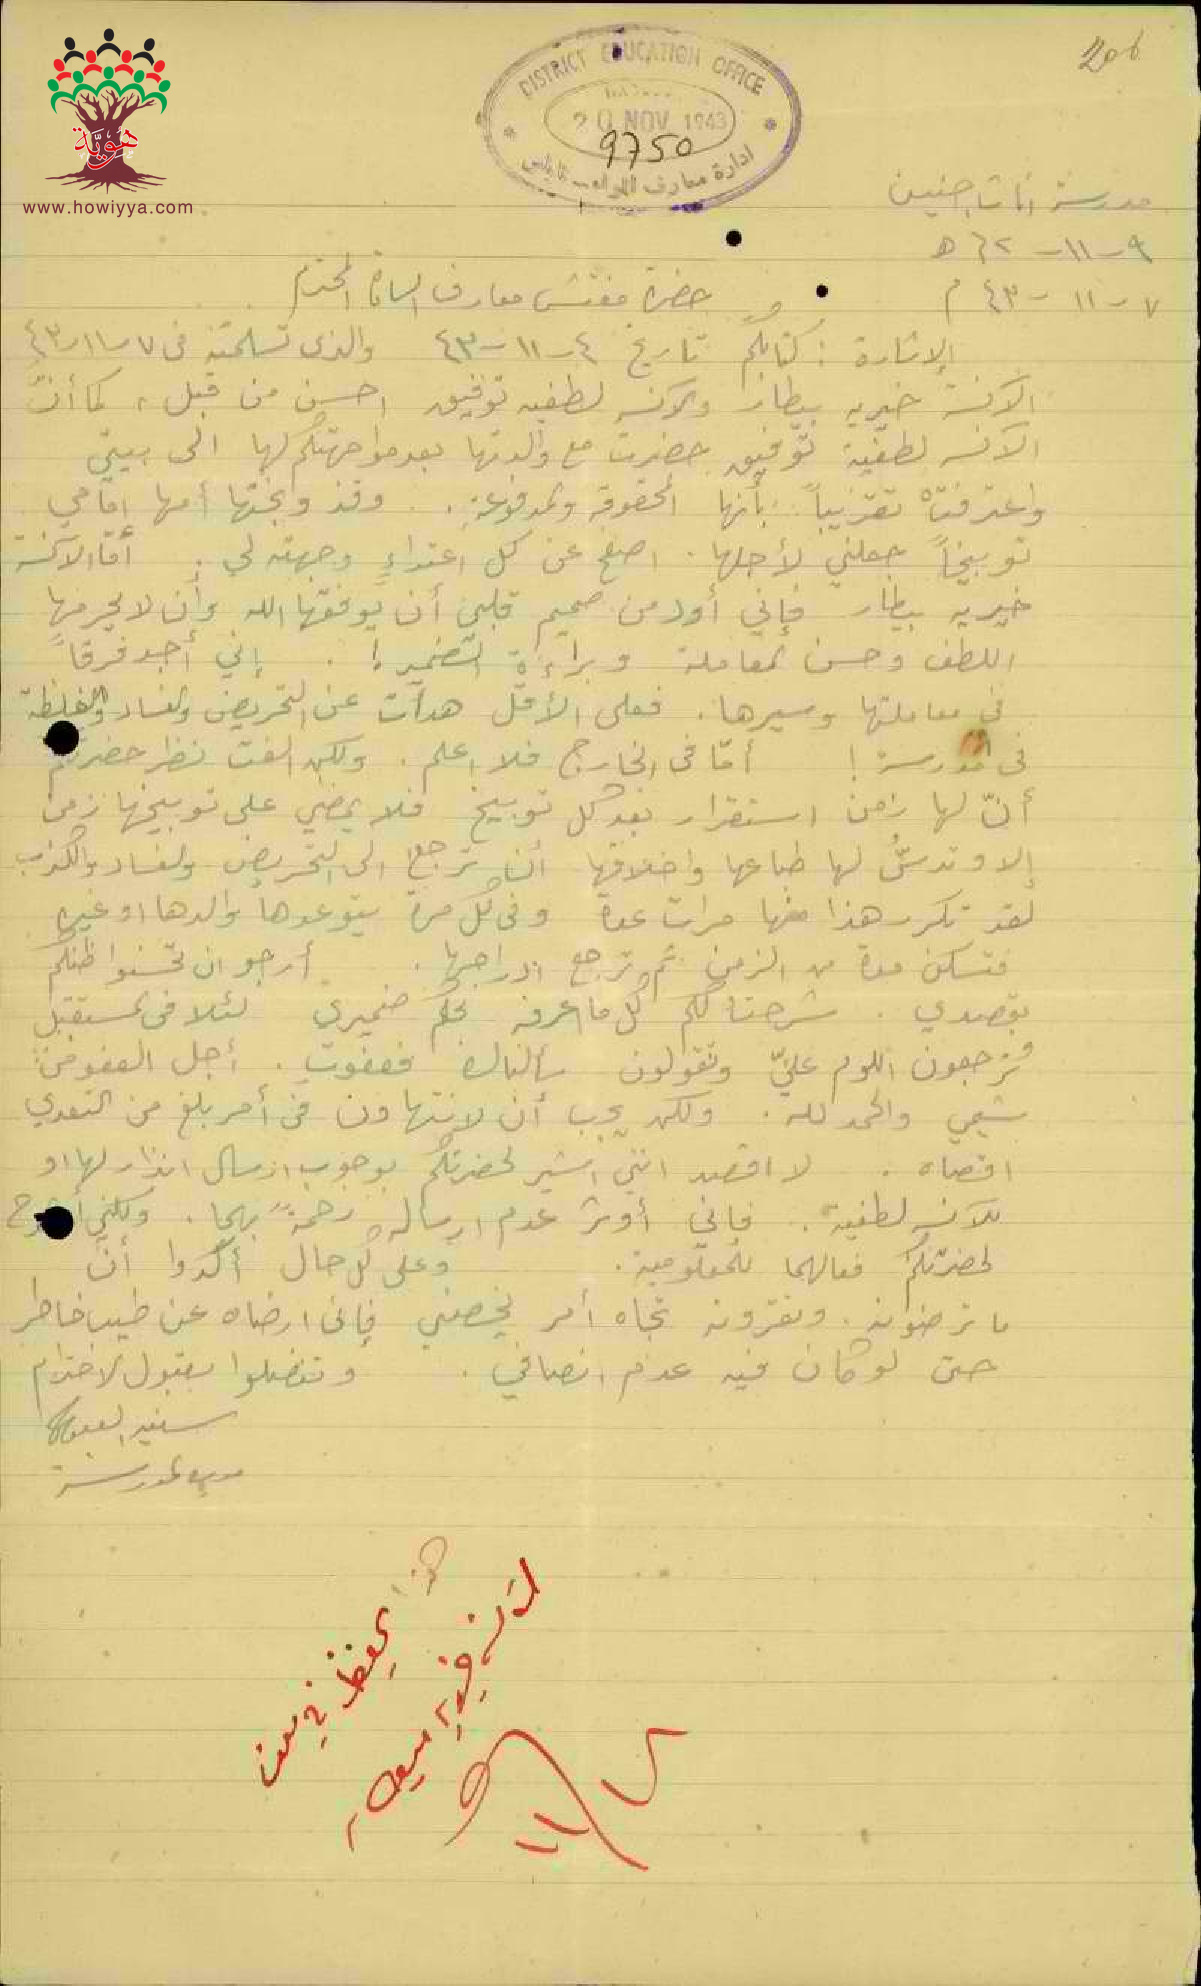 هوية
www.howiyya.com
DISTRICT EDUCATION OFFICE
20 NOV 1943
9750
ادارة معارف اللواء نابلس
مدرسة اناث جنين
٩-١١-٦٢ هـ
٧-١١-٤٣ م
حضرة مفتش معارف السامرة المحترم
الإشارة: كتابكم تاريخ ٤-١١-٤٣ والذي تسلمته في ٧-١١-٤٣
الآنسة خيريه بيطار والآنسه لطفيه توفيق احسن من قبل، كما أنّ
الآنسه لطفيّة توفيق حضرت مع والدتها بعد مواجهتكم لها الى بيتي
واعترفت تقريباً بأنها المحقوقه والمدفوعة. وقد وبختها أمها امامي
توبيخاً جعلني لأجلها اصفح عن كل اعتداءٍ وجهته لي. أمّا الآنسة
خيريه بيطار فإني أود من صميم قلبي أن يوفقها الله وأن لا يحرمها
اللطف وحسن المعاملة وبراءة الضمير! إني أجد فرقاً
في معاملتها وسيرها. فعلى الأقل هدأت عن التحريض والفساد والغلظة
في المدرسة! أمّا في الخارج فلا اعلم. ولكن الفت نظر حضرتكم
أنّ لها زمن استقرار بعد كل توبيخ فلا يمضي على توبيخها زمن
إلا و لها طباعها واخلاقها أن ترجع الى التحريض والفساد والكذب
لقد تكرر هذا منها مرات عدة وفي كل مرة يتوعدها والدها او غيره
فتسكن مدة من الزمن ثم ترجع ادراجها. أرجو ان تحسنوا ظنكم
بقصدي. شرحت لكم كل ما اعرفه بحكم ضميري لئلا في المستقبل
ترجعون اللوم عليّ وتقولون سألناك فعفوت. أجل العفو من
شيمي والحمد لله. ولكن يجب أن لا نتهاون في أمر بلغ من التعدي
اقصاه. لا اقصد انني اشير لحضرتكم بوجوب ارسال انذار لها او
للآنسه لطفية. فإني أوثر عدم ارساله رحمةً بهما. ولكني أشرح
لحضرتكم فعالهما للمعلومية. وعلى كل حال أكدوا أنّ
ما ترضونه وتقرونه تجاه أمر يخصني فإني ارضاه عن طيب خاطر
حتى لو كان فيه عدم انصافي. وتفضلوا بقبول الاحترام
مديرة المدرسة
هذا يحفظ في ملف
الآنسة خيريه